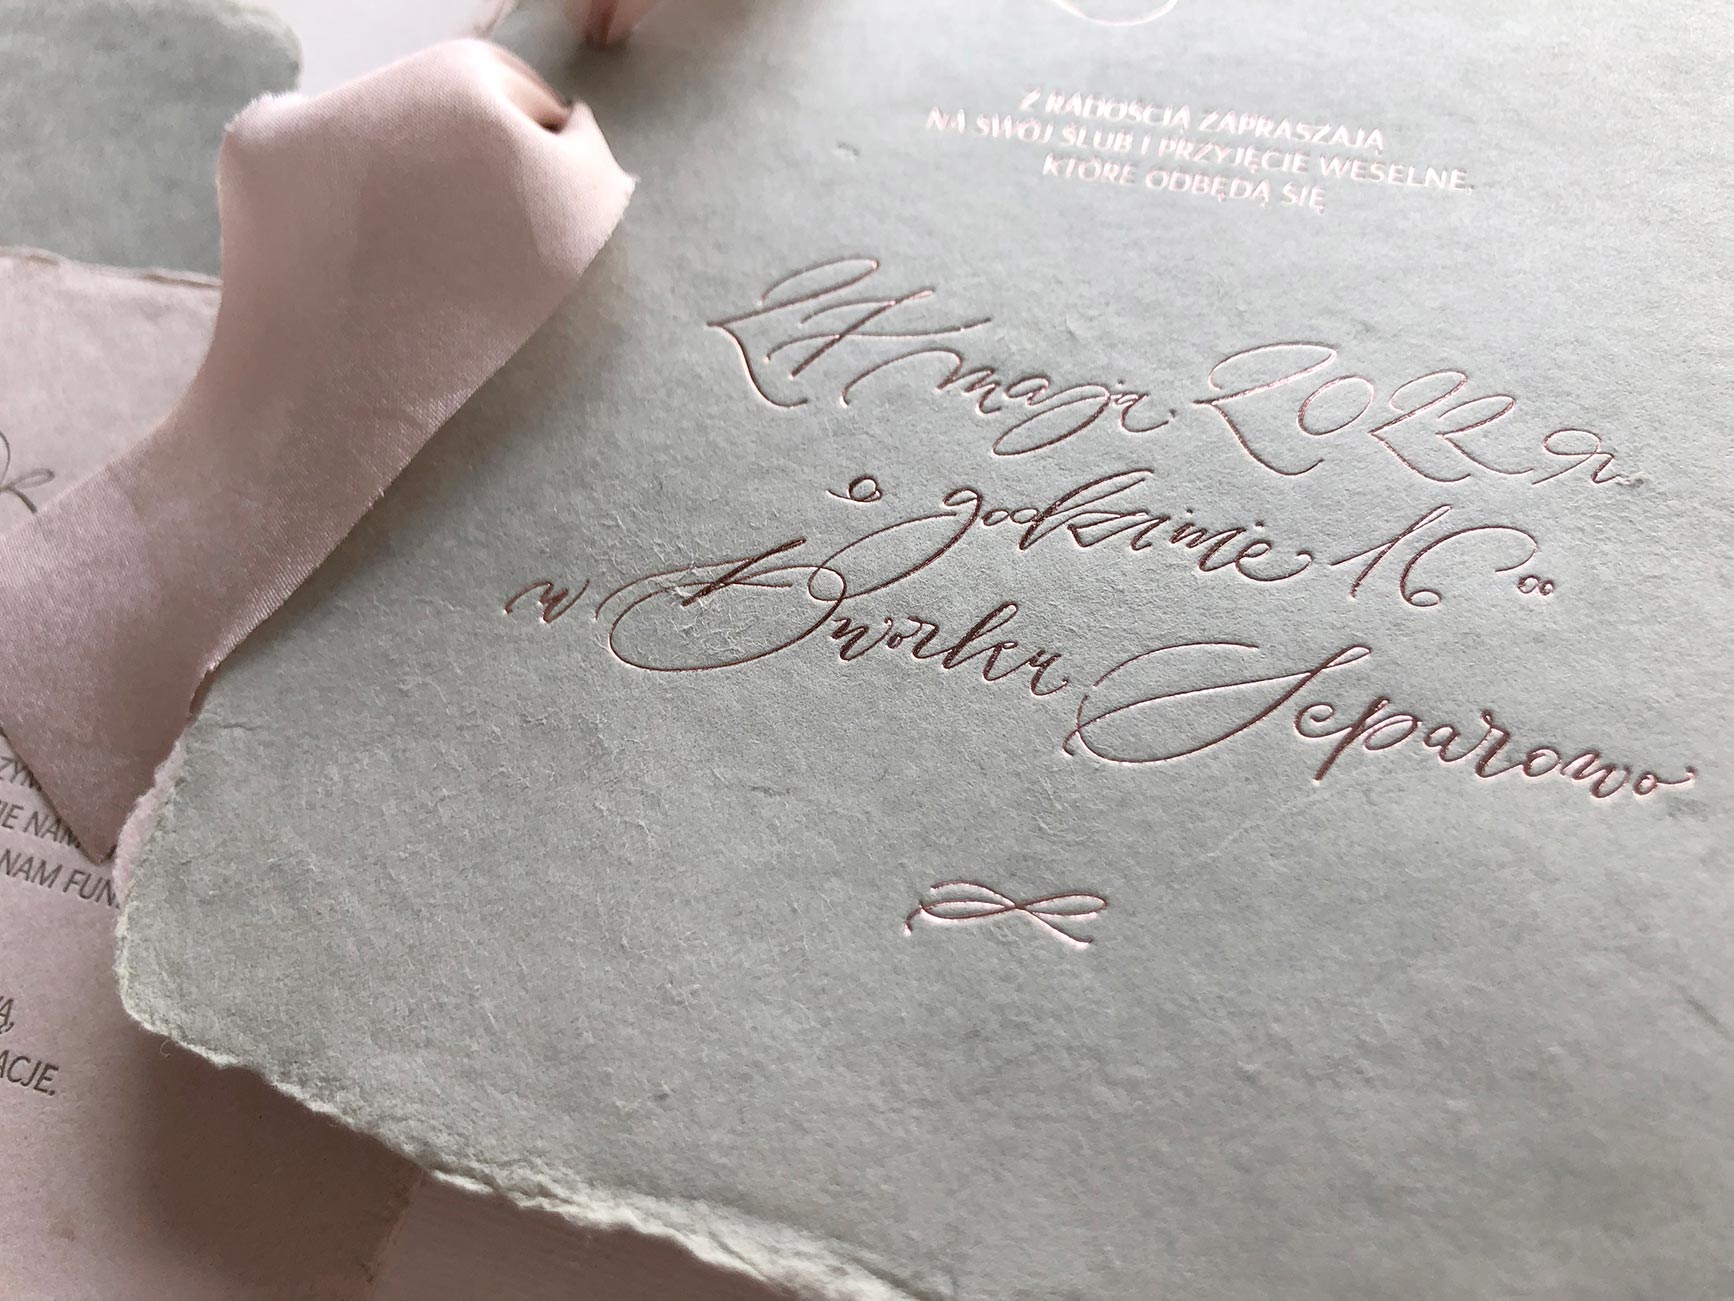 Z RADOŚCIĄ ZAPRASZAJĄ
NA SWÓJ ŚLUB I PRZYJĘCIE WESELNE,
KTÓRE ODBĘDĄ SIĘ
maja 2022 r.
o godzinie 16 00
w Dworku Separowo
IE NAM
NAM FUN
ACJE.